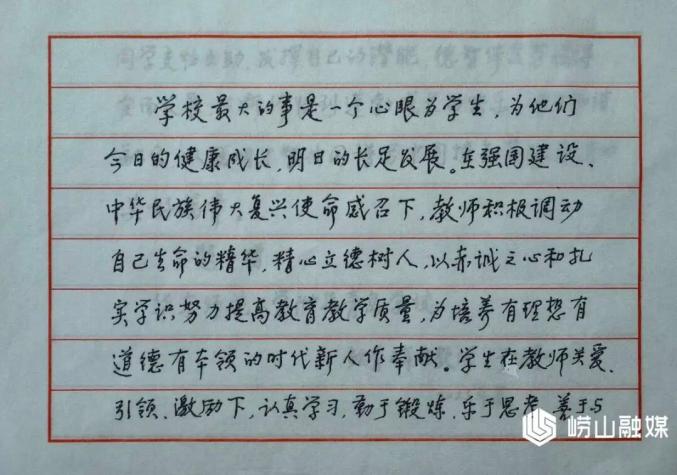 学校最大的事是一个心眼为学生，为他们
今日的健康成长，明日的长足发展。在强国建设、
中华民族伟大复兴使命感召下，教师积极调动
自己生命的精华，精心立德树人，以赤诚之心和扎
实学识努力提高教育教学质量，为培养有理想有
道德有本领的时代新人作奉献。学生在教师关爱、
引领、激励下，认真学习，勤于锻炼，乐于思考，善于与
崂山融媒